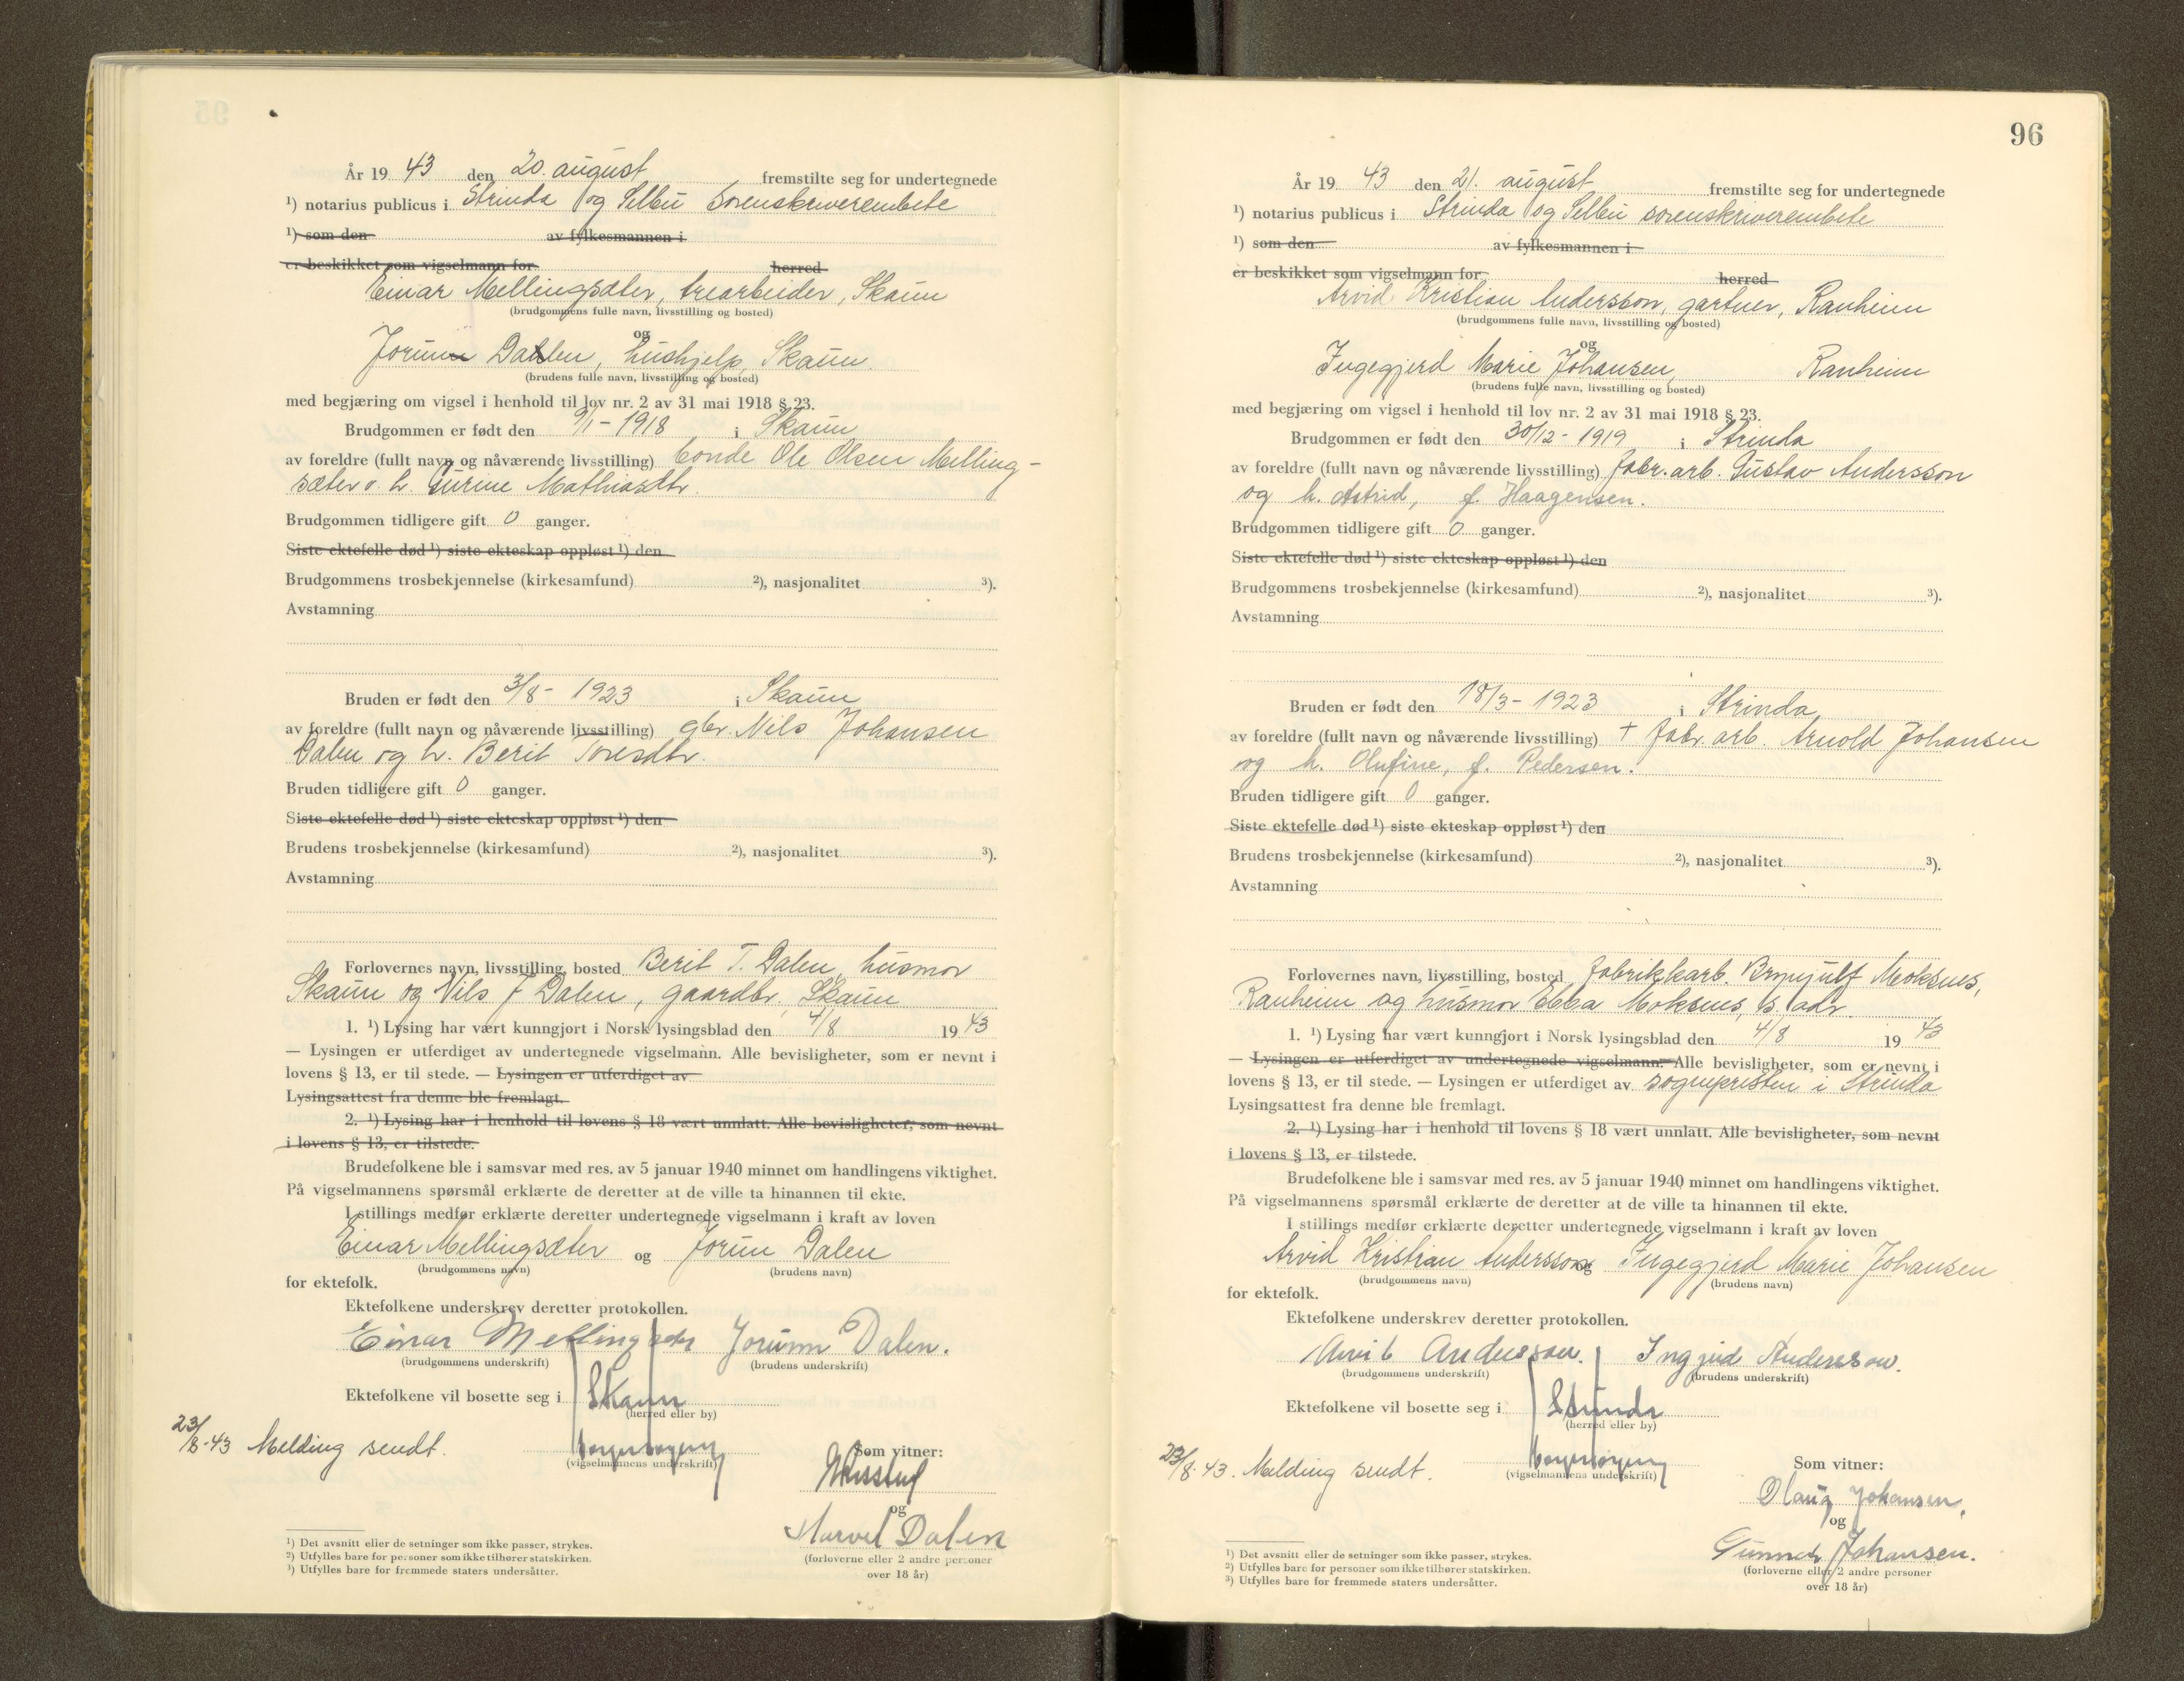 År 19 43 den 20. august fremstilte seg for undertegnede
¹) notarius publicus i Strinda og Selbu Sorenskriverembete
¹) som den av fylkesmannen i
er beskikket som vigselmann for herred
Einar Mellingsæter, trearbeider, Skaun
(brudgommens fulle navn, livsstilling og bosted)
og
Jorunn Dalen, hushjelp, Skaun.
(brudens fulle navn, livsstilling og bosted)
med begjæring om vigsel i henhold til lov nr. 2 av 31 mai 1918 § 23.
Brudgommen er født den 9/1-1918 i Skaun
av foreldre (fullt navn og nåværende livsstilling) bonde Ole Olsen Melling-
sæter o. h. Gurine Mathiasdtr.
Brudgommen tidligere gift 0 ganger.
Siste ektefelle død ¹) siste ekteskap oppløst ¹) den
Brudgommens trosbekjennelse (kirkesamfund) ²), nasjonalitet ³).
Avstamning
Bruden er født den 3/8- 1923 i Skaun
av foreldre (fullt navn og nåværende livsstilling) gbr. Nils Johansen
Dalen og h. Berit Toresdtr.
Bruden tidligere gift 0 ganger.
Siste ektefelle død ¹) siste ekteskap oppløst ¹) den
Brudens trosbekjennelse (kirkesamfund) ²), nasjonalitet ³).
Avstamning
Forlovernes navn, livsstilling, bosted Berit T. Dalen, husmor
Skaun og Nils J Dalen, gaardbr., Skaun
1. ¹) Lysing har vært kunngjort i Norsk lysingsblad den 4/8 19 43
— Lysingen er utferdiget av undertegnede vigselmann. Alle bevisligheter, som er nevnt i
lovens § 13, er til stede. — Lysingen er utferdiget av
Lysingsattest fra denne ble fremlagt.
2. ¹) Lysing har i henhold til lovens § 18 vært unnlatt. Alle bevisligheter, som nevnt
i lovens § 13, er tilstede.
Brudefolkene ble i samsvar med res. av 5 januar 1940 minnet om handlingens viktighet.
På vigselmannens spørsmål erklærte de deretter at de ville ta hinannen til ekte.
I stillings medfør erklærte deretter undertegnede vigselmann i kraft av loven
Einar Mellingsæter og Jorun Dalen
(brudgommens navn) (brudens navn)
for ektefolk.
Ektefolkene underskrev deretter protokollen.
Einar Mellingsæter Jorunn Dalen.
(brudgommens underskrift) (brudens underskrift)
Ektefolkene vil bosette seg i Skaun
(herred eller by)
23/8-43 Melding sendt.
(vigselmannens underskrift)
Som vitner:
og
Marvel Dalen
(forloverne eller 2 andre personer
over 18 år)
¹) Det avsnitt eller de setninger som ikke passer, strykes.
²) Utfylles bare for personer som ikke tilhører statskirken.
³) Utfylles bare for fremmede staters undersåtter.
96
År 19 43 den 21. august fremstilte seg for undertegnede
¹) notarius publicus i Strinda og Selbu sorenskriverembete
¹) som den av fylkesmannen i
er beskikket som vigselmann for herred
Arvid Kristian Andersson, gartner, Ranheim
(brudgommens fulle navn, livsstilling og bosted)
og
Ingegjerd Marie Johansen, Ranheim
(brudens fulle navn, livsstilling og bosted)
med begjæring om vigsel i henhold til lov nr. 2 av 31 mai 1918 § 23.
Brudgommen er født den 30/12-1919 i Strinda
av foreldre (fullt navn og nåværende livsstilling) fabr. arb. Gustav Andersson
og h. Astrid, f. Haagensen.
Brudgommen tidligere gift 0 ganger.
Siste ektefelle død ¹) siste ekteskap oppløst ¹) den
Brudgommens trosbekjennelse (kirkesamfund) ²), nasjonalitet ³).
Avstamning
Bruden er født den 18/3-1923 i Strinda
av foreldre (fullt navn og nåværende livsstilling) + fabr. arb. Arnold Johansen
og h. Olufine, f. Pedersen.
Bruden tidligere gift 0 ganger.
Siste ektefelle død ¹) siste ekteskap oppløst ¹) den
Brudens trosbekjennelse (kirkesamfund) ²), nasjonalitet ³).
Avstamning
Forlovernes navn, livsstilling, bosted fabrikkarb. Brynjulf Moksnes,
Ranheim og husmor Ebba Moksnes, s. adr.
1. ¹) Lysing har vært kunngjort i Norsk lysingsblad den 4/8 19 43
— Lysingen er utferdiget av undertegnede vigselmann. Alle bevisligheter, som er nevnt i
lovens § 13, er til stede. — Lysingen er utferdiget av sognepresten i Strinda
Lysingsattest fra denne ble fremlagt.
2. ¹) Lysing har i henhold til lovens § 18 vært unnlatt. Alle bevisligheter, som nevnt
i lovens § 13, er tilstede.
Brudefolkene ble i samsvar med res. av 5 januar 1940 minnet om handlingens viktighet.
På vigselmannens spørsmål erklærte de deretter at de ville ta hinannen til ekte.
I stillings medfør erklærte deretter undertegnede vigselmann i kraft av loven
Arvid Kristian Andersson og Ingegjerd Marie Johansen
(brudgommens navn) (brudens navn)
for ektefolk.
Ektefolkene underskrev deretter protokollen.
Arvid Andersson. Ingjerd Andersson.
(brudgommens underskrift) (brudens underskrift)
Ektefolkene vil bosette seg i Strinda
(herred eller by)
23/8-43. Melding sendt.
(vigselmannens underskrift)
Som vitner:
Olaug Johansen,
og
Gunnar Johansen.
(forloverne eller 2 andre personer
over 18 år)
¹) Det avsnitt eller de setninger som ikke passer, strykes.
²) Utfylles bare for personer som ikke tilhører statskirken.
³) Utfylles bare for fremmede staters undersåtter.